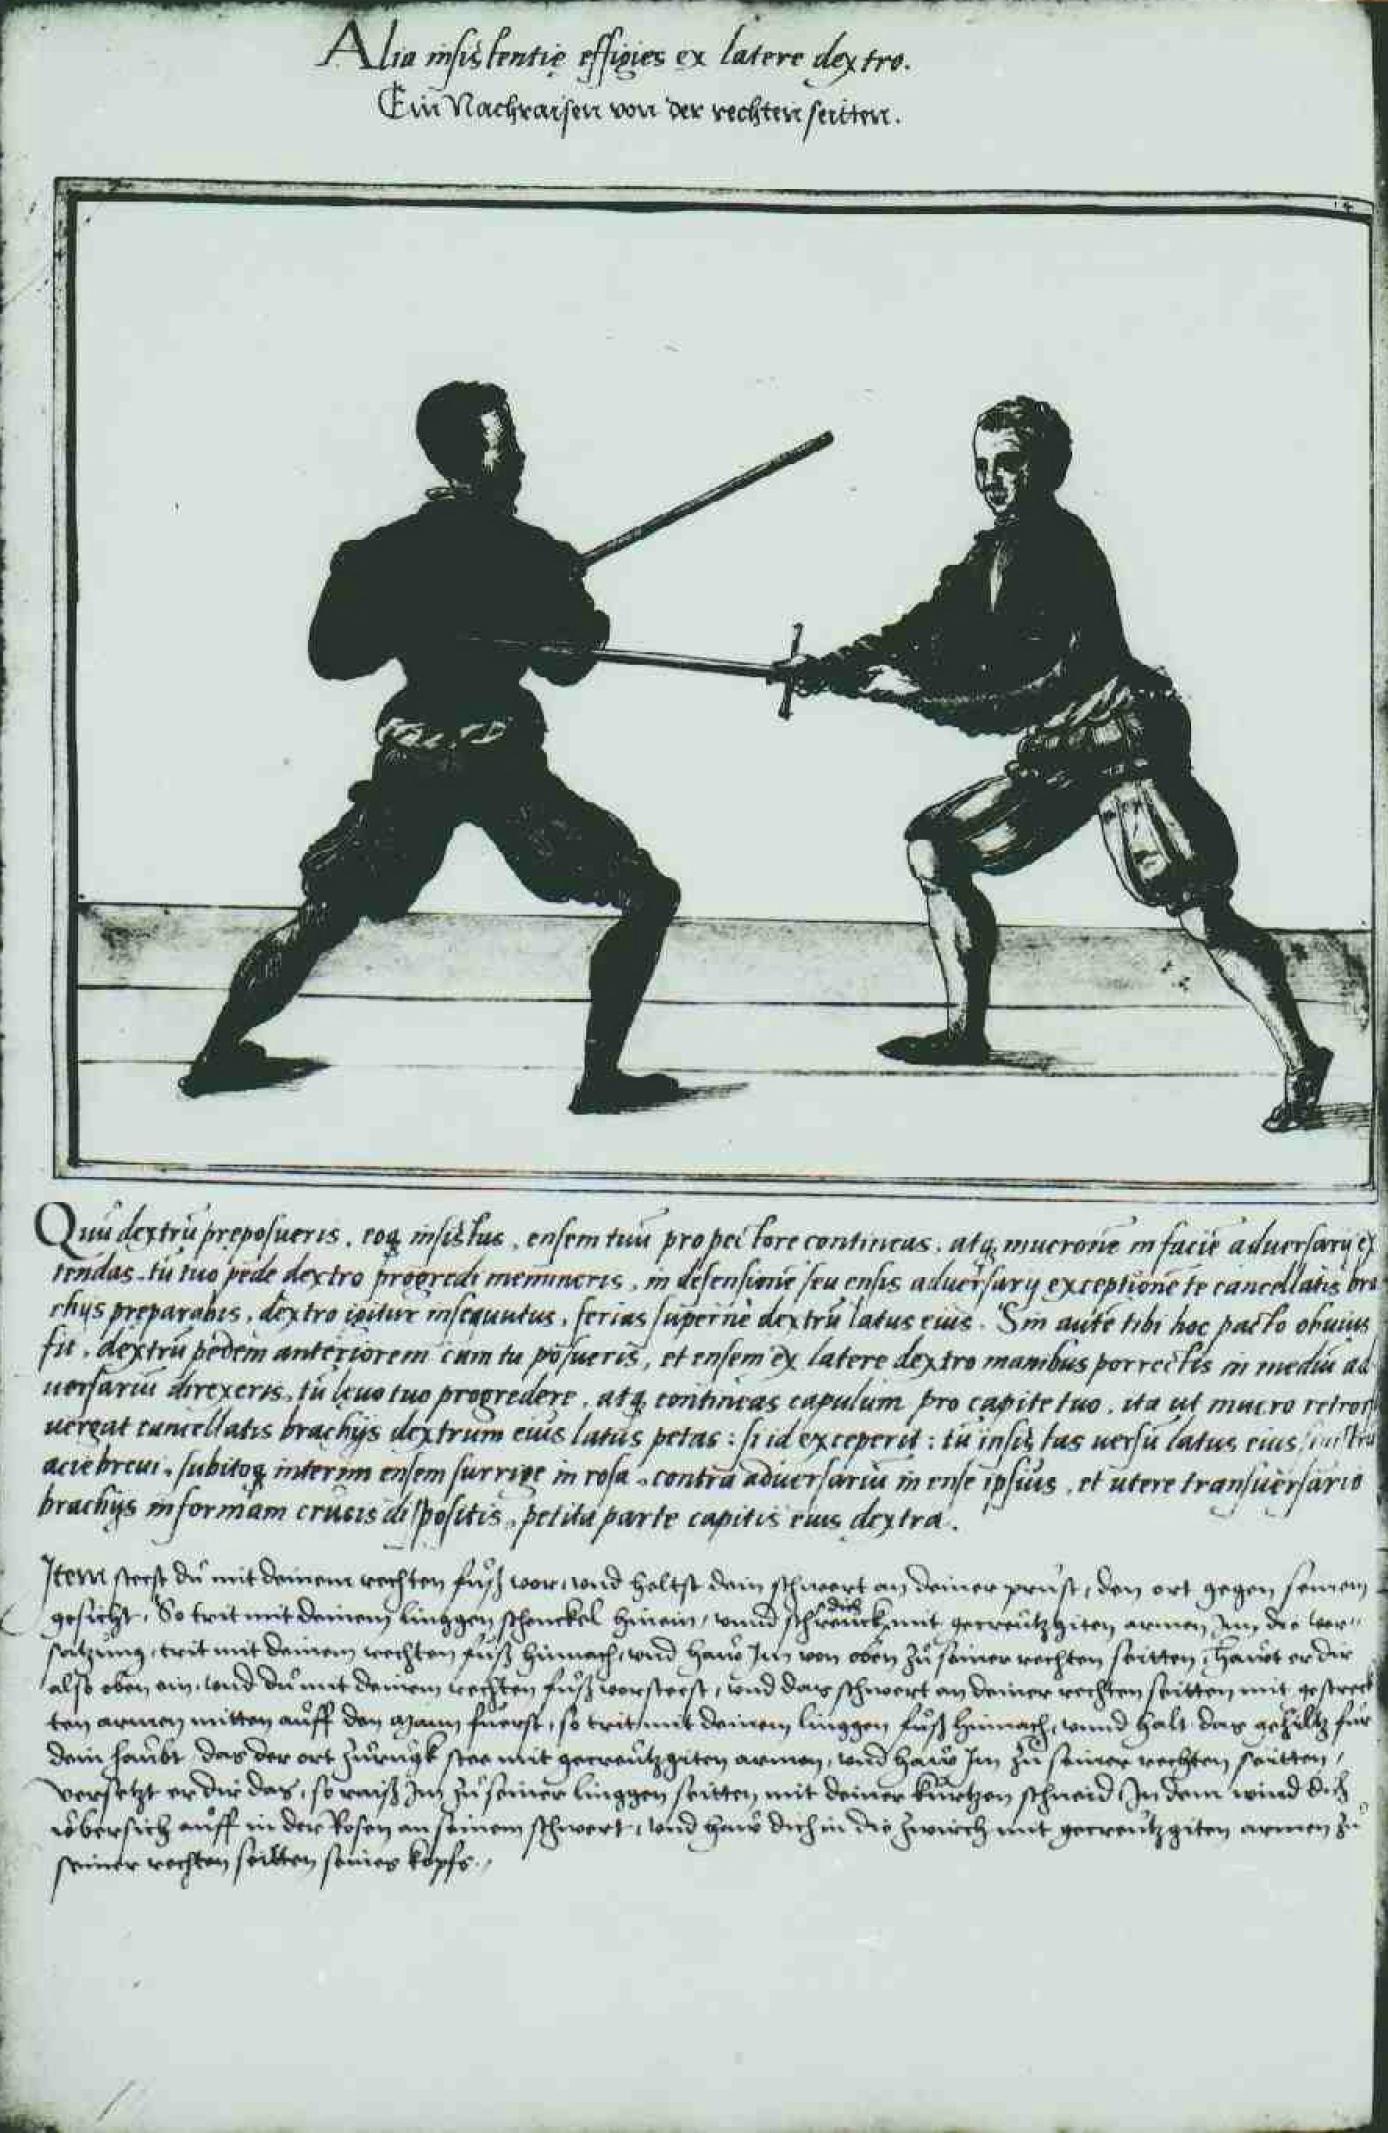 Alia insistentię effigies ex latere dextro.
Ein Nachraisen von der rechten seitten.
14
Quũ dextrũ pręposueris, eoq̨ insistus, ensem tuũ pro pectore contineas, atq̨ mucronẽ in faciẽ aduersarij ex
tendas, tu tuo pede dextro progredi memineris, in defensionẽ seu ensis aduersarij exceptionẽ te cancellatis bra
chijs preparabis, dextro igitur insequutus, ferias supernè dextrũ latus eius. Sin autẽ tibi hoc pacto obuius
fit, dextrũ pedem anteriorem cum tu posueris, et ensem ex latere dextro manibus porrectis in mediũ ad
uersariũ direxeris, tu lęuo tuo progredere, atq̨ contineas capulum pro capite tuo, ita ut mucro retrors
uergat cancellatis brachijs dextrum eius latus petas: si id exceperit: tu insistas uersũ latus eius sinistrũ
acie breui, subitoq̨ interim ensem surrige in rosa, contra aduersariũ in ense ipsius, et utere transuersario
brachijs in formam crucis dispositis, petita parte capitis eius dextra.
Item steest dũ mit deinem rechten fũß vor, vnd heltst dein schwert an deiner prust, den ort gegen seinem
gesicht, So trit mit deinem linggen schenckel hinein, vnnd schrenck dich mit gecreutzgiten armen Inn die ver-
satzung, trit mit deinem rechten fuß hinnach, vnd haw Im von oben zũ seiner rechten seitten, Hawt er dir
also oben ein, vnd dũ mit deinem rechten fuß vorsteest, vnd das schwert an deiner rechten seitten mit gestreck
ten armen mitten auff den Mann fuerst, so trit mit deinem linggen fuß hinnach, vnnd halt das gehiltz für
dein haubt das der ort zurugk stee mit gecreutzgiten armen, vnd haw Im zu seiner rechten seitten,
versetzt er dir das, so reiß Im zu seiner linggen seitten mit deiner kurtzen schneid, In dem wind dich
übersich auff in der Rosen an seinem schwert, vnd haw dich in die zwirch mit gecreutzgiten armen zu
seiner rechten seitten seines kopfs.